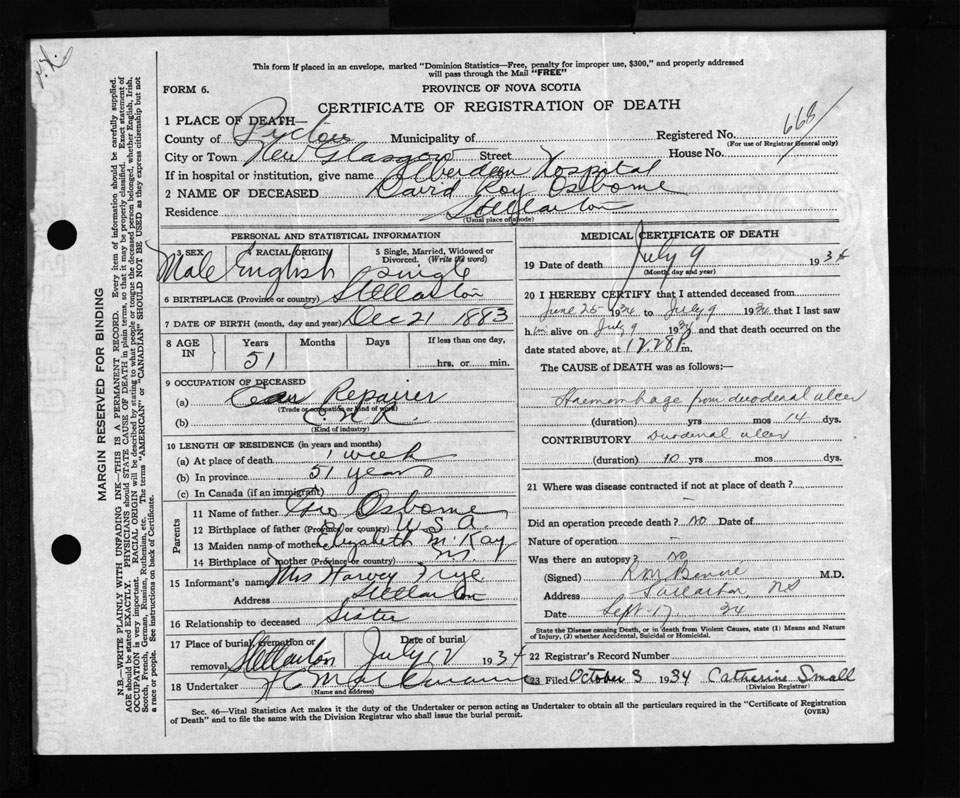 This form if placed in an envelope, marked "Dominion Statistics—Free, penalty for improper use, $300," and properly addressed
will pass through the Mail "FREE"
FORM 6.
PROVINCE OF NOVA SCOTIA
CERTIFICATE OF REGISTRATION OF DEATH
1 PLACE OF DEATH—
County of Pictou Municipality of Registered No. 668
(For use of Registrar General only)
City or Town New Glasgow Street House No.
If in hospital or institution, give name Aberdeen Hospital
2 NAME OF DECEASED David Roy Osborne
Residence Stellarton
(Usual place of abode)
PERSONAL AND STATISTICAL INFORMATION
3 SEX Male RACIAL ORIGIN English 5 Single, Married, Widowed or Divorced. (Write the word) Single
6 BIRTHPLACE (Province or country) Stellarton
7 DATE OF BIRTH (month, day and year) Dec 21 1883
8 AGE IN Years 51 Months Days If less than one day, hrs. or min.
9 OCCUPATION OF DECEASED
(a) Car Repairer
(Trade or occupation or kind of work)
(b) C.N.R
(Kind of industry)
10 LENGTH OF RESIDENCE (in years and months)
(a) At place of death 1 week
(b) In province 51 years
(c) In Canada (if an immigrant)
Parents
11 Name of father Geo Osborne
12 Birthplace of father (Province or country) U.S.A.
13 Maiden name of mother Elizabeth McKay
14 Birthplace of mother (Province or country)
15 Informant's name Mrs Harvey Frye
Address Stellarton
16 Relationship to deceased Sister
17 Place of burial, cremation or removal Stellarton Date of burial July 12 1934
18 Undertaker
(Name and address)
MEDICAL CERTIFICATE OF DEATH
19 Date of death July 9 1934
(Month, day and year)
20 I HEREBY CERTIFY that I attended deceased from
June 25 1934 to July 9 1934 that I last saw
him alive on July 9 1934 and that death occurred on
date stated above, at 12.28 P.m.
The CAUSE of DEATH was as follows:—
Haemorrhage from duodenal ulcer
(duration) yrs mos 14 dys.
CONTRIBUTORY Duodenal ulcer
(duration) 10 yrs mos dys.
21 Where was disease contracted if not at place of death? —
Did an operation precede death? No Date of
Nature of operation —
Was there an autopsy? No
(Signed) M.D.
Address Stellarton NS
Date Sept. 17 34
State the Disease causing Death, or in death from Violent Causes, state (1) Means and Nature
of Injury, (2) whether Accidental, Suicidal or Homicidal.
22 Registrar's Record Number
23 Filed October 3 1934 Catherine Small
(Division Registrar)
Sec. 46—Vital Statistics Act makes it the duty of the Undertaker or person acting as Undertaker to obtain all the particulars required in the "Certificate of Registration
of Death" and to file the same with the Division Registrar who shall issue the burial permit.
(OVER)
MARGIN RESERVED FOR BINDING
N.B.—WRITE PLAINLY WITH UNFADING INK—THIS IS A PERMANENT RECORD. Every item of information should be carefully supplied.
AGE should be stated EXACTLY. PHYSICIANS should STATE CAUSE OF DEATH in plain terms, so that it may be properly classified. Exact statement of
OCCUPATION is very important. RACIAL ORIGIN will be described by stating to what people or tongue the deceased person belonged, whether English, Irish,
Scotch, French, German, Russian, Ruthenian, etc. The terms "AMERICAN" or "CANADIAN" SHOULD NOT BE USED as they express citizenship but not
a race of people. See instructions on back of Certificate.